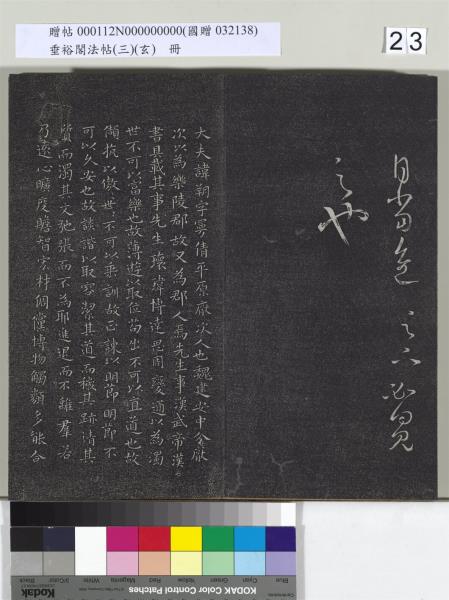 贈帖 000112N000000000(國贈 032138)
垂裕閣法帖(三)(玄) 冊
23
之也
大夫諱朔字曼倩平原厭次人也魏建安中分厭
次以為樂陵郡故又為郡人焉先生事漢武帝漢
書具載其事先生瓌瑋博達思周變通以為濁
世不可以富樂也故薄遊以取位苟出不可以直道也故
頡抗以傲世傲世不可以垂訓故正諫以明節明節不
可以久安也故談諧以取容潔其道而穢其跡清其
質而濁其文弛張而不為耶進退而不離羣若
乃遠心曠度贍智宏材倜儻博物觸類多能合
Blue Cyan Green Yellow Red Magenta White 3/Color Black
Kodak KODAK Color Control Patches